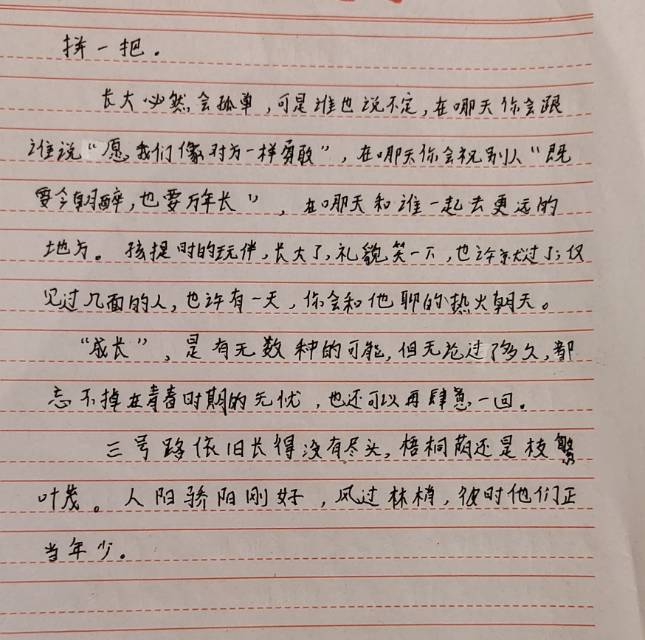 拼一把。
长大必然会孤单，可是谁也说不定，在哪天你会跟
谁说“愿我们像对方一样勇敢”，在哪天你会祝别人“既
要今朝醉，也要万年长”，在哪天和谁一起去更远的
地方。孩提时的玩伴，长大了，礼貌笑一下，也许就过了；仅
见过几面的人，也许有一天，你会和他聊的热火朝天。
“成长”，是有无数种的可能，但无论过了多久，都
忘不掉在青春时期的无忧，也还可以再肆意一回。
三号路依旧长得没有尽头，梧桐荫还是枝繁
叶茂。人阳骄阳刚好，风过林梢，彼时他们正
当年少。